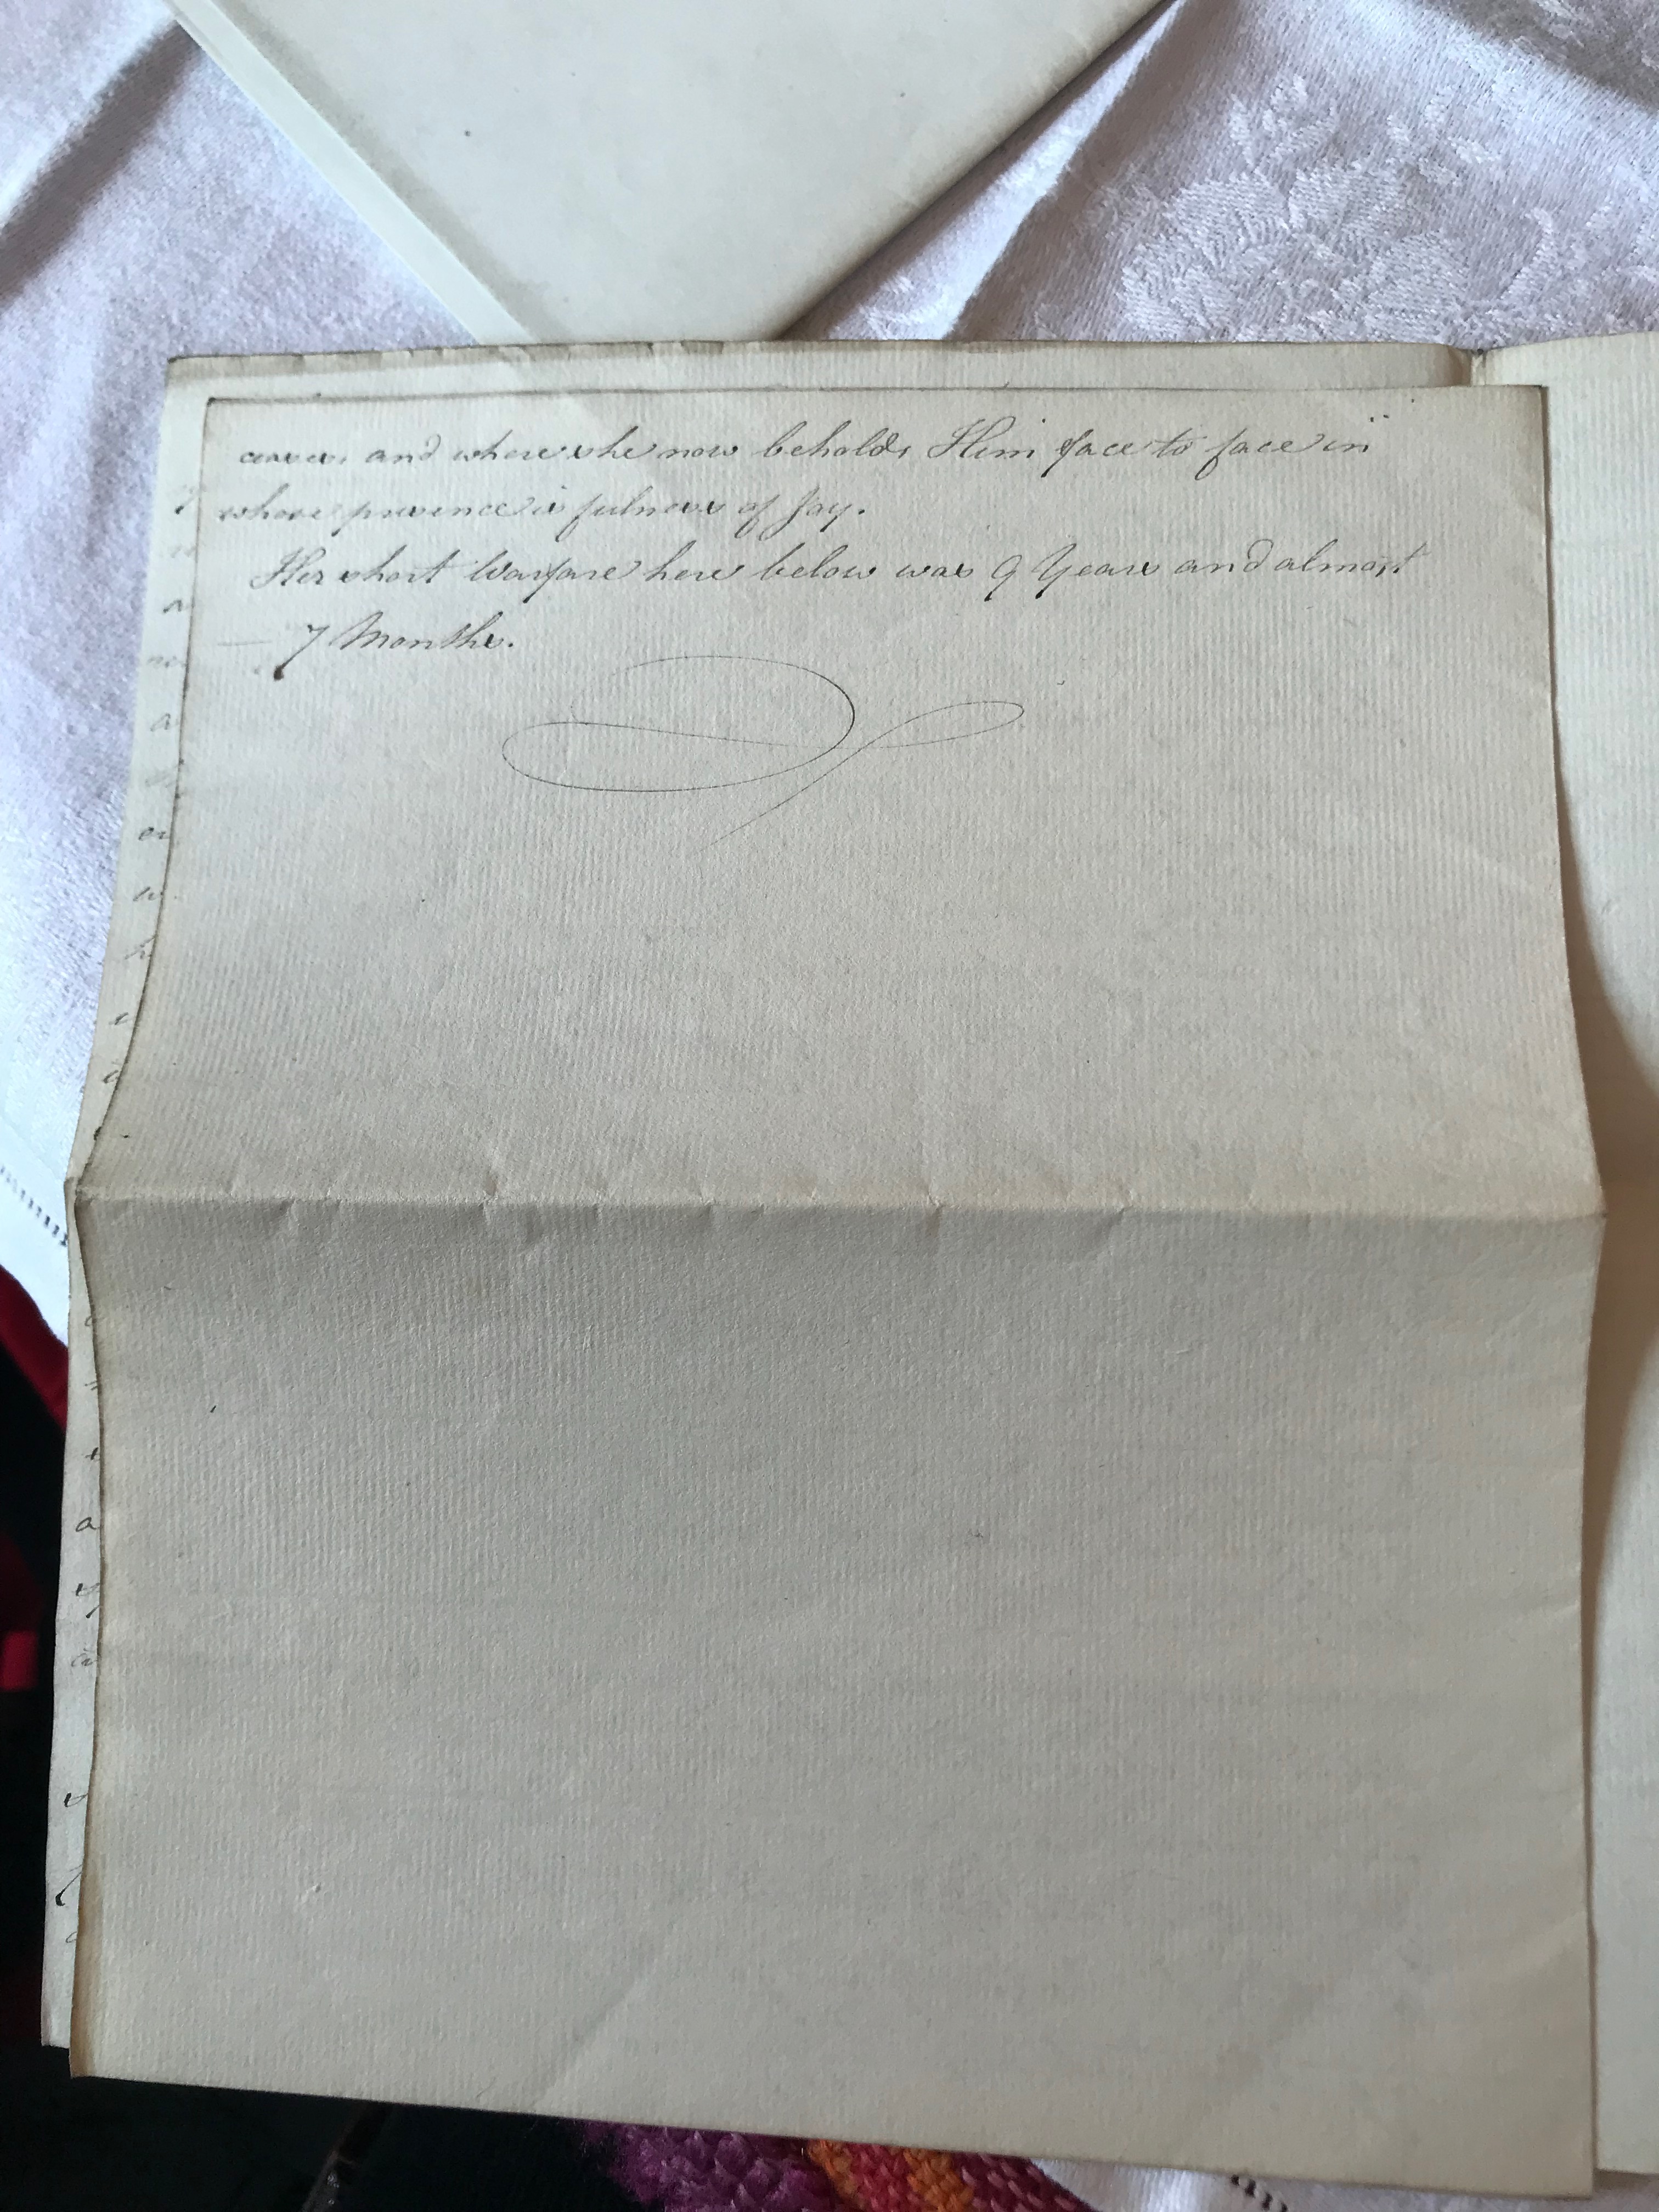 and where she now beholds Him face to face in
whose presence is fulness of Joy.
Her short Warfare here below was 9 Years and almost
— 7 Months.